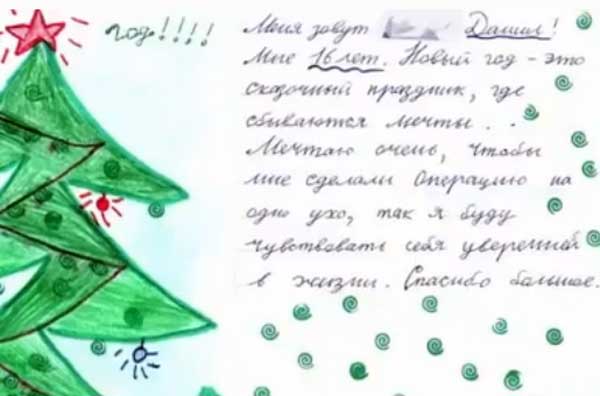 год!!!!
Меня зовут Данил!
Мне 16 лет. Новый год - это
сказочный праздник, где
сбываются мечты...
Мечтаю очень, чтобы
мне сделали операцию на
одно ухо, так я буду
чувствовать себя уверенней
в жизни. Спасибо большое.